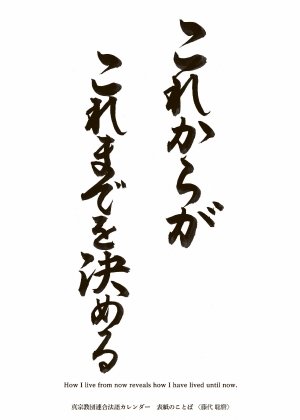 これからが
これまでを決める
How I live from now reveals how I have lived until now.
真宗教団連合法語カレンダー　表紙のことば　（藤代 聡麿）